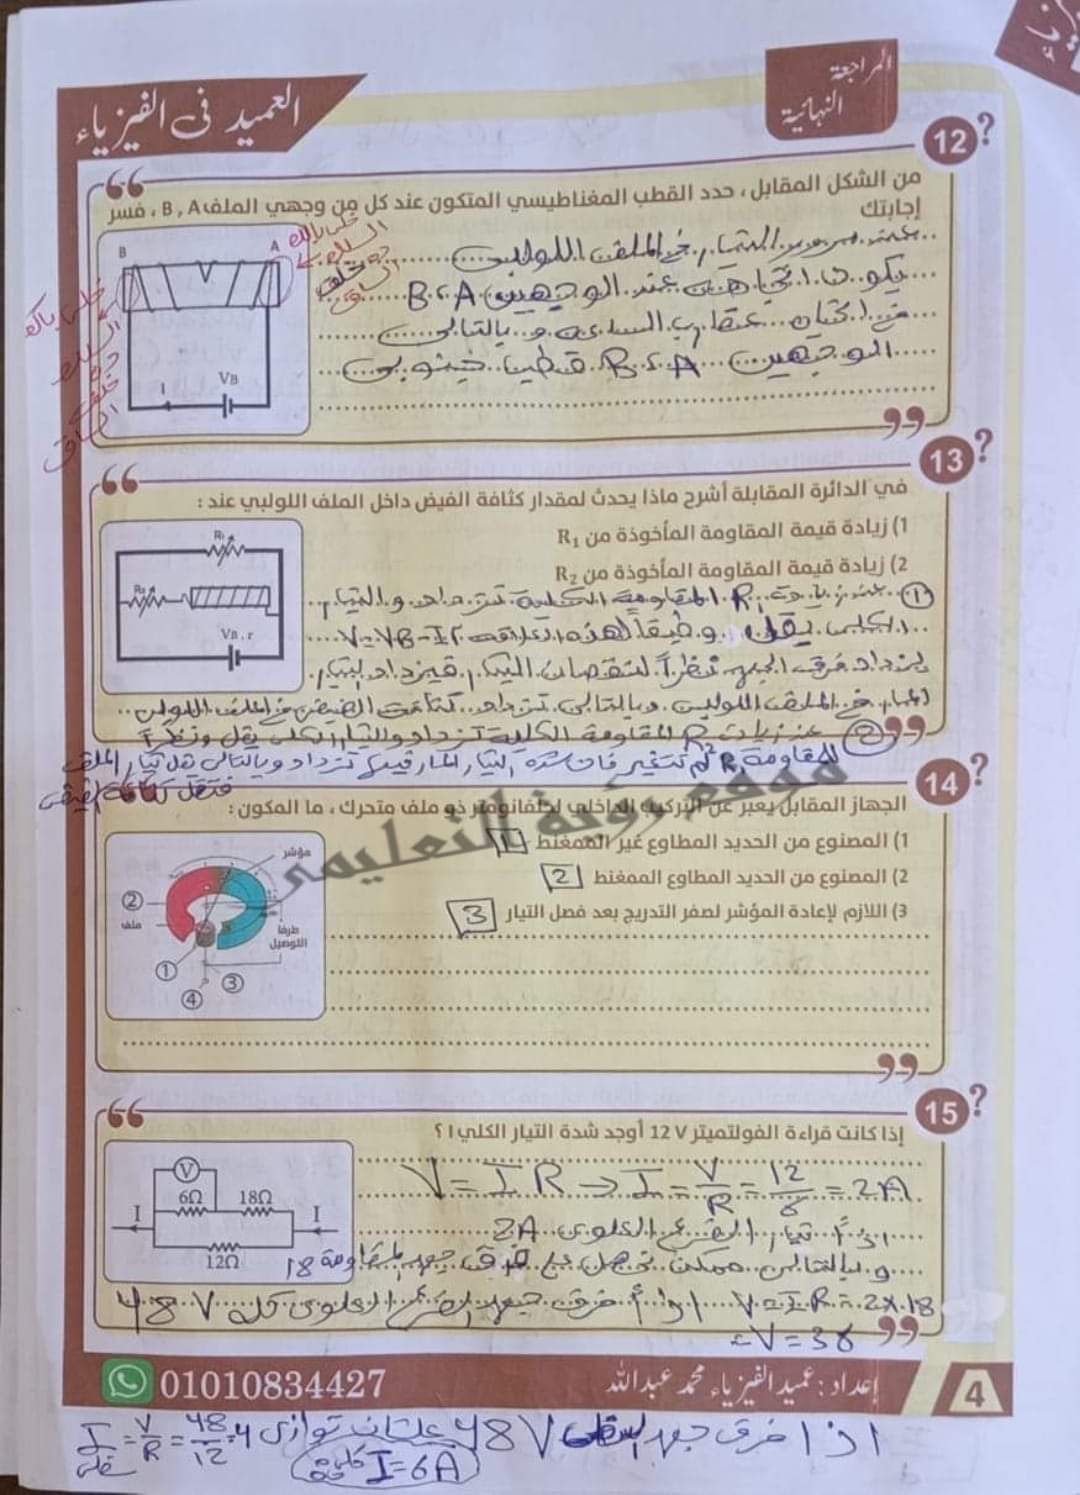 المراجعة
النهائية
العميد فى الفيزياء
12
من الشكل المقابل ، حدد القطب المغناطيسي المتكون عند كل من وجهي الملف B , A ، فسر
إجابتك
عند مرور التيار في الملف اللولبي
يكون اتجاهه عند الوجهين A ، B
في اتجاه عقارب الساعة وبالتالي
الوجهين A ، B قطبا جنوبي
B
A
I
VB
13
في الدائرة المقابلة أشرح ماذا يحدث لمقدار كثافة الفيض داخل الملف اللولبي عند :
1) زيادة قيمة المقاومة المأخوذة من R1
2) زيادة قيمة المقاومة المأخوذة من R2
R1
R2
VB , r
① عند زيادة R1 المقاومة الكلية تزداد والتيار
الكلى يقل وطبقاً لهذه العلاقة V=VB-Ir
يزداد فرق الجهد نظراً لنقصان التيار فيزداد التيار
المار في الملف اللولبى وبالتالى تزداد كثافة الفيض في الملف اللولبى
② عند زيادة R المقاومة الكلية تزداد والتيار الكلى يقل ونظراً
للمقاومة R1 لم تتغير فان شدة التيار المار فيها تزداد وبالتالى يقل تيار الملف
فتقل كثافة الفيض
موقع رؤية التعليمى
14
الجهاز المقابل يعبر عن التركيب الداخلي لجلفانومتر ذو ملف متحرك ، ما المكون :
1) المصنوع من الحديد المطاوع غير الممغنط 1
2) المصنوع من الحديد المطاوع الممغنط 2
3) اللازم لإعادة المؤشر لصفر التدريج بعد فصل التيار 3
مؤشر
②
ملف
طرفا
التوصيل
①
③
④
15
إذا كانت قراءة الفولتميتر 12 V أوجد شدة التيار الكلي I ؟
V
6Ω
18Ω
I
I
12Ω
V = I R → I = V/R = 12/6 = 2A
اذاً تيار الفرع العلوى 2A
وبالتالى ممكن نحصل على فرق جهد المقاومة 18
V=IR= 2×18 اذاً فرق جهد الفرع العلوى كله 48V
=V=36
إعداد : عميد الفيزياء محمد عبدالله
01010834427
4
اذا فرق جهد السفلى 48V علشان توازى
I = V/R = 48/12 = 4
سفلى
I=6A
كلية